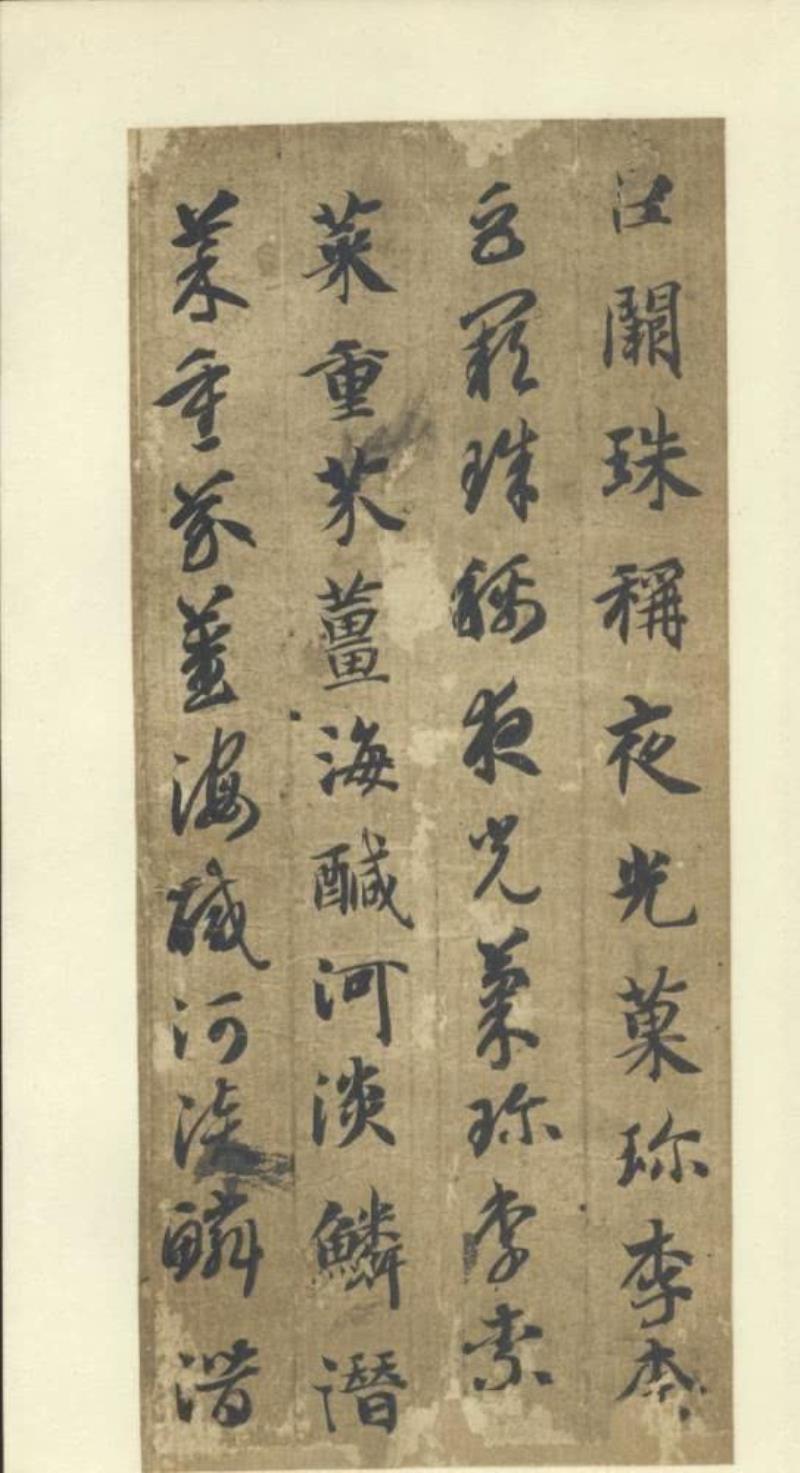 巨闕珠稱夜光菓珎李柰
巨闕珠稱夜光菓珎李柰
菜重芥薑海醎河淡鱗潛
菜重芥薑海醎河淡鱗潛